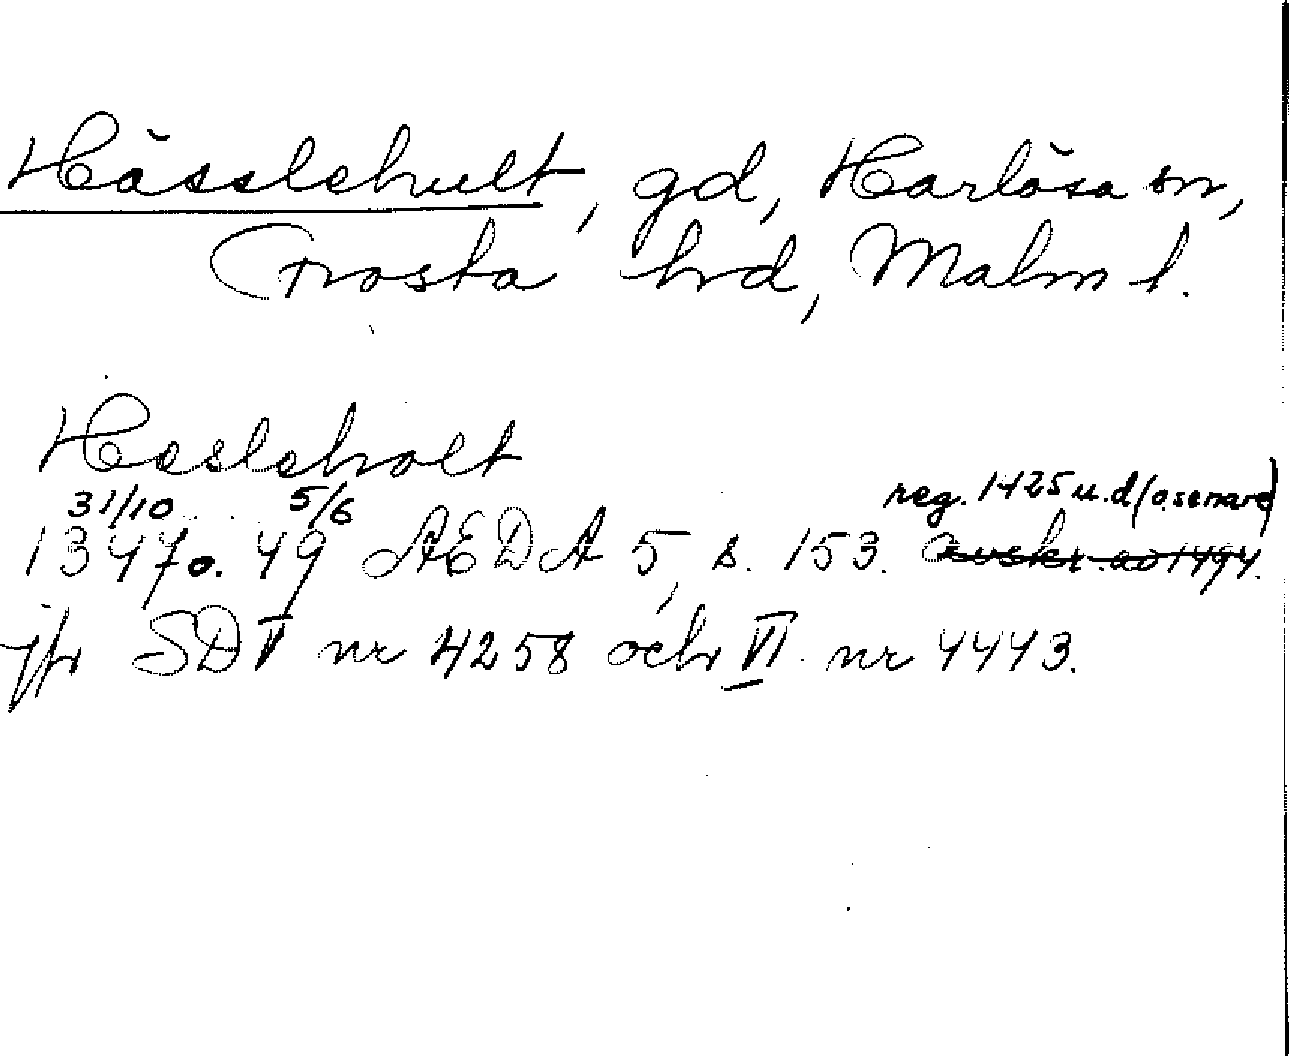 Hässlehult, gd, Harlösa sn,
Frosta hrd, Malm l.
Hesleholt
31/10 5/6 reg. 1425 u.d (o. senare)
1347 o. 49 AEDA 5, s. 153. avskr. ao 1494.
jfr SD V nr 4258 och VI nr 4443.